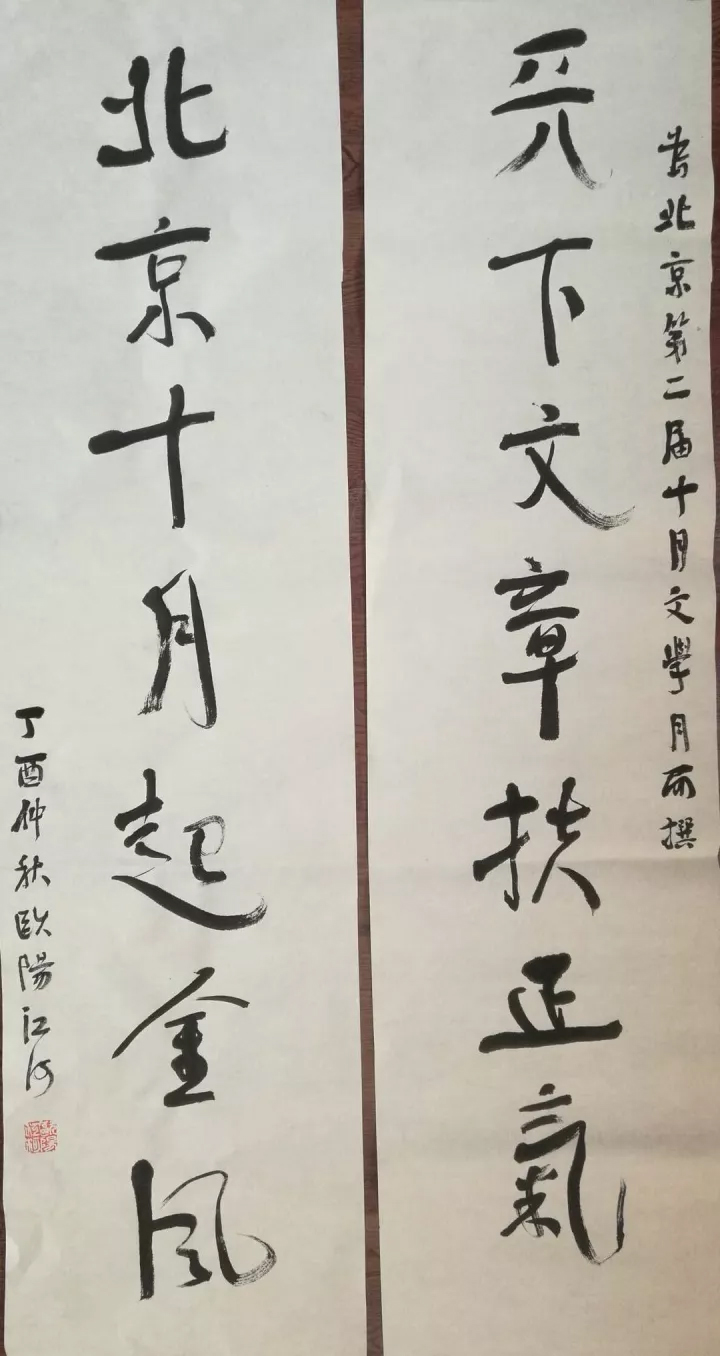 為北京第二届十月文學月而撰
天下文章扶正氣
北京十月起金风
丁酉仲秋欧陽江河